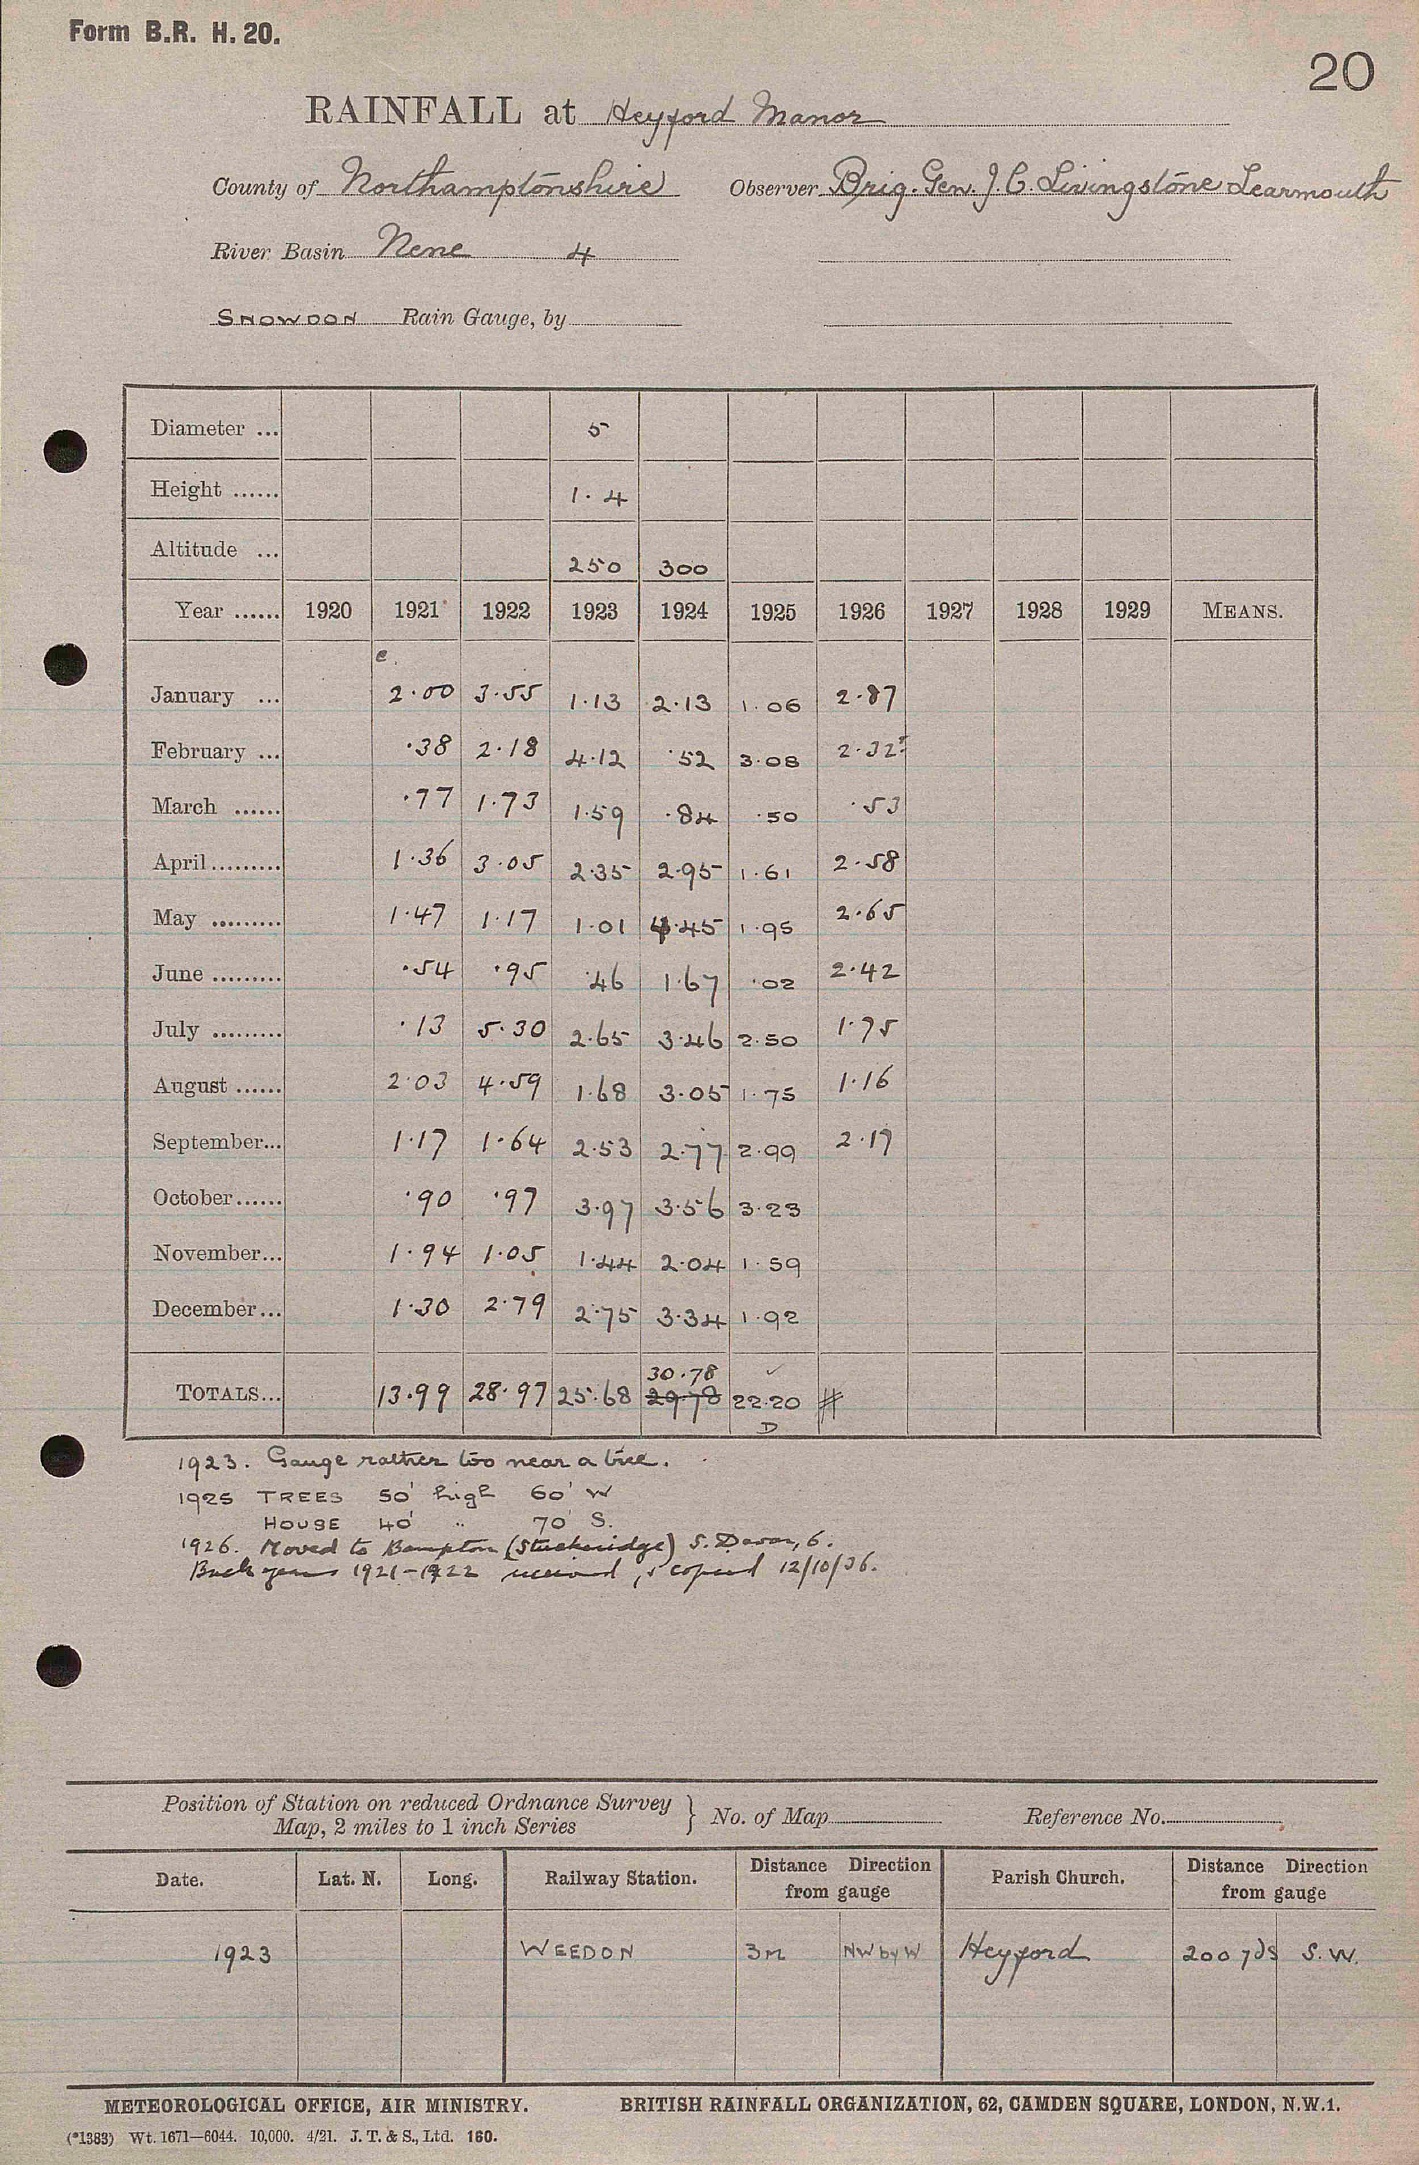 Form B.R. H. 20.
20
RAINFALL at Heyford Manor
County of Northamptonshire Observer Brig. Gen. J. C. Livingstone Learmouth
River Basin Nene 4
SNOWDON Rain Gauge, by
Diameter ... 5
Height ...... 1.4
Altitude ... 250 300
Year ...... 1920 1921 1922 1923 1924 1925 1926 1927 1928 1929 MEANS.
e.
January ... 2.00 3.55 1.13 2.13 1.06 2.87
February ... .38 2.18 4.12 .52 3.08 2.32
March ...... .77 1.73 1.59 .84 .50 .53
April......... 1.36 3.05 2.35 2.95 1.61 2.58
May ......... 1.47 1.17 1.01 4.45 1.95 2.65
June ......... .54 .95 .46 1.67 .02 2.42
July ......... .13 5.30 2.65 3.46 2.50 1.75
August ...... 2.03 4.59 1.68 3.05 1.75 1.16
September... 1.17 1.64 2.53 2.77 2.99 2.19
October...... .90 .97 3.97 3.56 3.23
November... 1.94 1.05 1.44 2.04 1.59
December... 1.30 2.79 2.75 3.34 1.92
30.78 ✓
TOTALS... 13.99 28.97 25.68 29.78 22.20 #
D
1923. Gauge rather too near a tree.
1925 TREES 50' high 60' W
HOUSE 40' " 70' S.
1926. Moved to Bampton (Stuckeridge) S. Devon, 6.
Back years 1921-1922 received, & copied 12/10/36.
Position of Station on reduced Ordnance Survey
Map, 2 miles to 1 inch Series } No. of Map Reference No.
Date. Lat. N. Long. Railway Station. Distance Direction from gauge Parish Church. Distance Direction from gauge
1923 WEEDON 3m NW by W Heyford 200 yds S.W.
METEOROLOGICAL OFFICE, AIR MINISTRY. BRITISH RAINFALL ORGANIZATION, 62, CAMDEN SQUARE, LONDON, N.W.1.
(*1383) Wt. 1671—6044. 10,000. 4/21. J. T. & S., Ltd. 160.